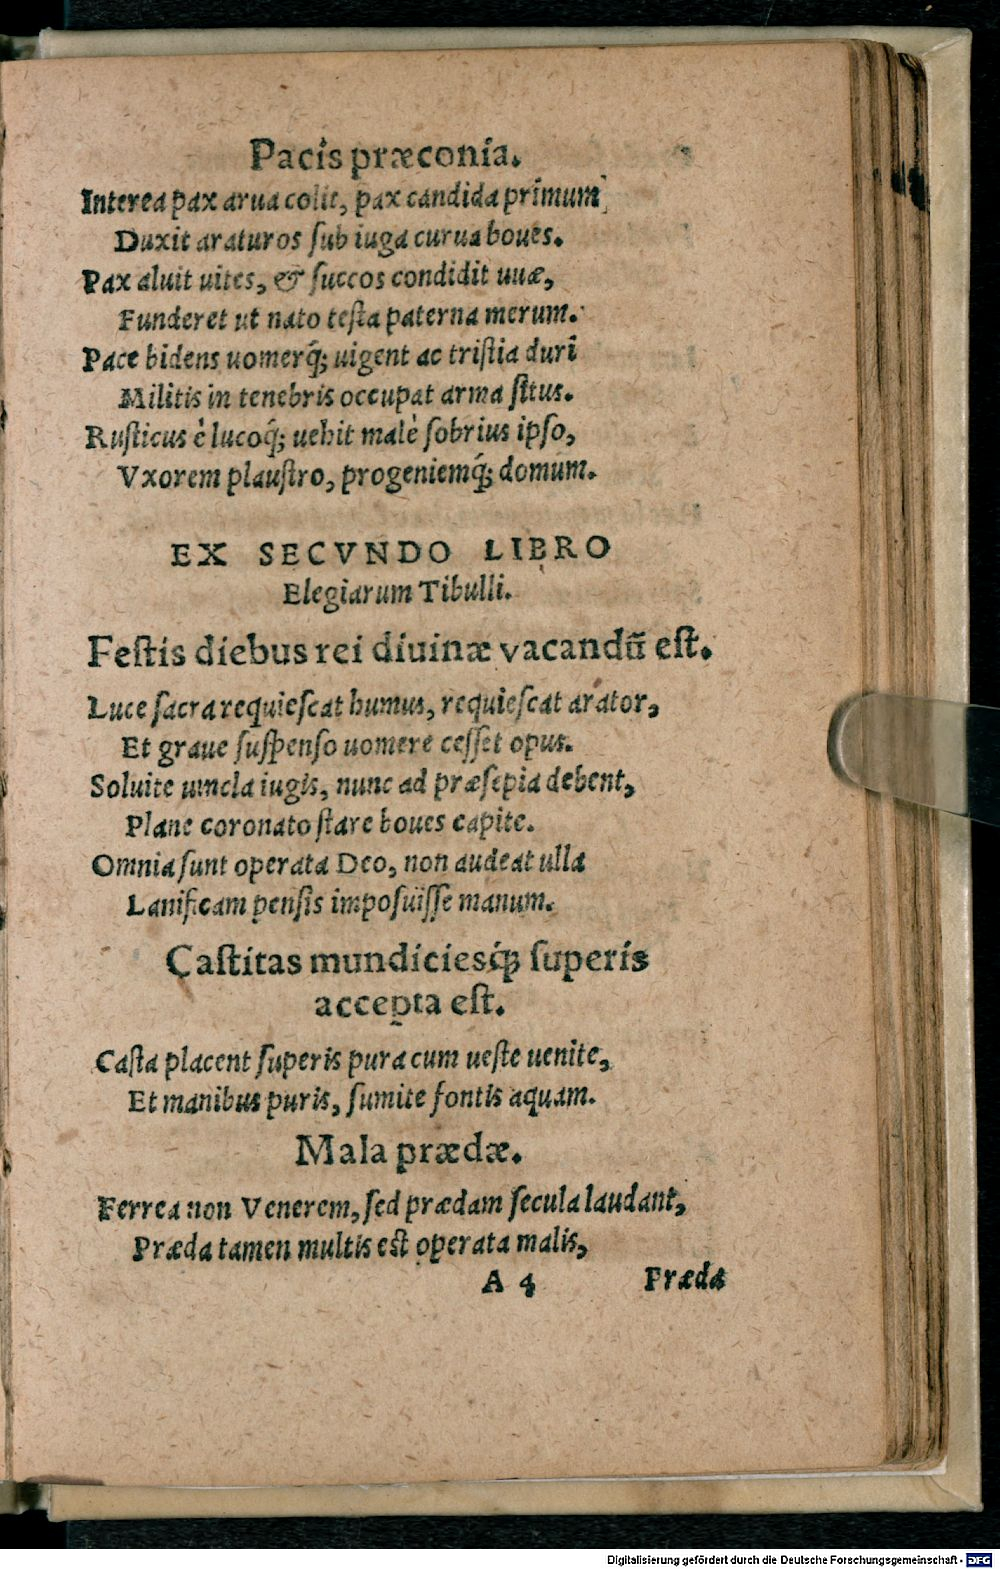 Pacis præconia.
Interea pax arua colit, pax candida primum
Duxit araturos ſub iuga curua boues.
Pax aluit uites, & ſuccos condidit uuæ,
Funderet ut nato teſta paterna merum.
Pace bidens uomerq́; uigent ac triſtia duri
Militis in tenebris occupat arma ſitus.
Ruſticus è lucoq́; uehit malè ſobrius ipſo,
Vxorem plauſtro, progeniemq́; domum.
EX SECVNDO LIBRO
Elegiarum Tibulli.
Feſtis diebus rei diuinæ vacandū eſt.
Luce ſacra requieſcat humus, requieſcat arator,
Et graue ſuſpenſo uomere ceſſet opus.
Soluite uincla iugis, nunc ad præſepia debent,
Plane coronato ſtare boues capite.
Omnia ſunt operata Deo, non audeat ulla
Lanificam penſis impoſuiſſe manum.
Caſtitas mundiciesq́; ſuperis
accepta eſt.
Caſta placent ſuperis pura cum ueſte uenite,
Et manibus puris, ſumite fontis aquam.
Mala prædæ.
Ferrea non Venerem, ſed prædam ſecula laudant,
Præda tamen multis eſt operata malis,
A 4 Præda
Digitalisierung gefördert durch die Deutsche Forschungsgemeinschaft - DFG